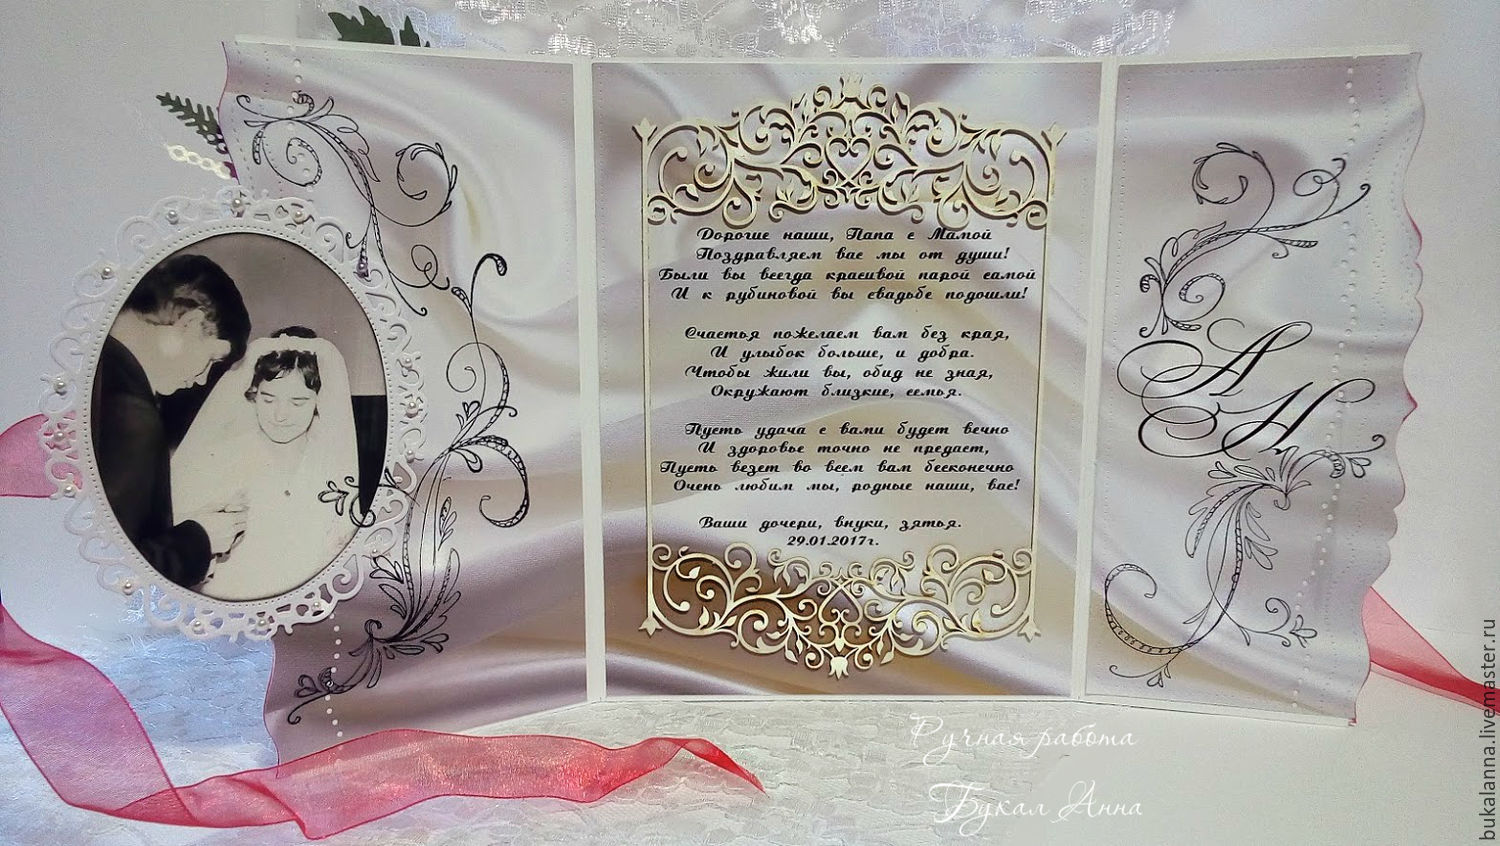 Дорогие наши, Папа с Мамой
Поздравляем вас мы от души!
Были вы всегда красивой парой самой
И к рубиновой вы свадьбе подошли!
Счастья пожелаем вам без края,
И улыбок больше, и добра.
Чтобы жили вы, обид не зная,
Окружают близкие, семья.
Пусть удача с вами будет вечно
И здоровье точно не предаст,
Пусть везет во всем вам бесконечно
Очень любим мы, родные наши, вас!
Ваши дочери, внуки, зятья.
29.01.2017г.
А
Н
Ручная работа
Букал Анна
bukalanna.livemaster.ru